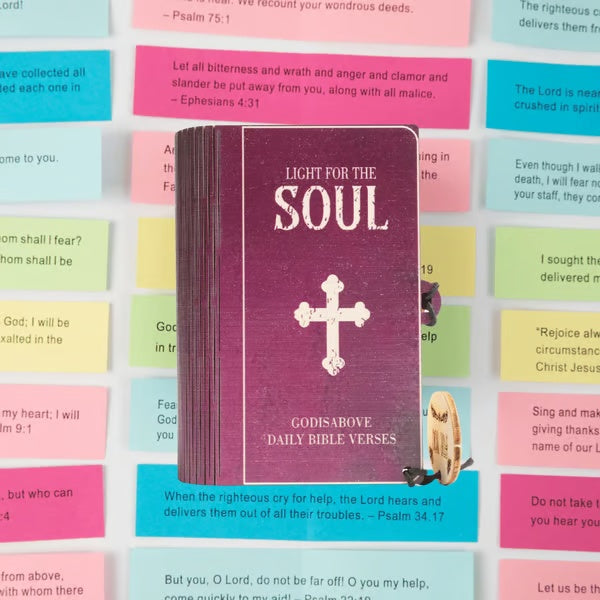 Lord!
is near. We recount your wondrous deeds.
– Psalm 75:1
The righteous c
delivers them fro
ave collected all
ted each one in
Let all bitterness and wrath and anger and clamor and
slander be put away from you, along with all malice.
– Ephesians 4:31
The Lord is near
crushed in spirit
ome to you.
LIGHT FOR THE
SOUL
GODISABOVE
DAILY BIBLE VERSES
Even though I walk
death, I will fear no
your staff, they com
hom shall I fear?
hom shall I be
19
I sought the
delivered m
God; I will be
exalted in the
God
in tr
elp
"Rejoice alw
circumstance
Christ Jesus
my heart; I will
lm 9:1
Fea
God
you
Sing and mak
giving thanks
name of our L
, but who can
:4
When the righteous cry for help, the Lord hears and
delivers them out of all their troubles. – Psalm 34.17
Do not take t
you hear you
from above,
with whom there
But you, O Lord, do not be far off! O you my help,
come quickly to my aid! – Psalm 22:19
Let us be th